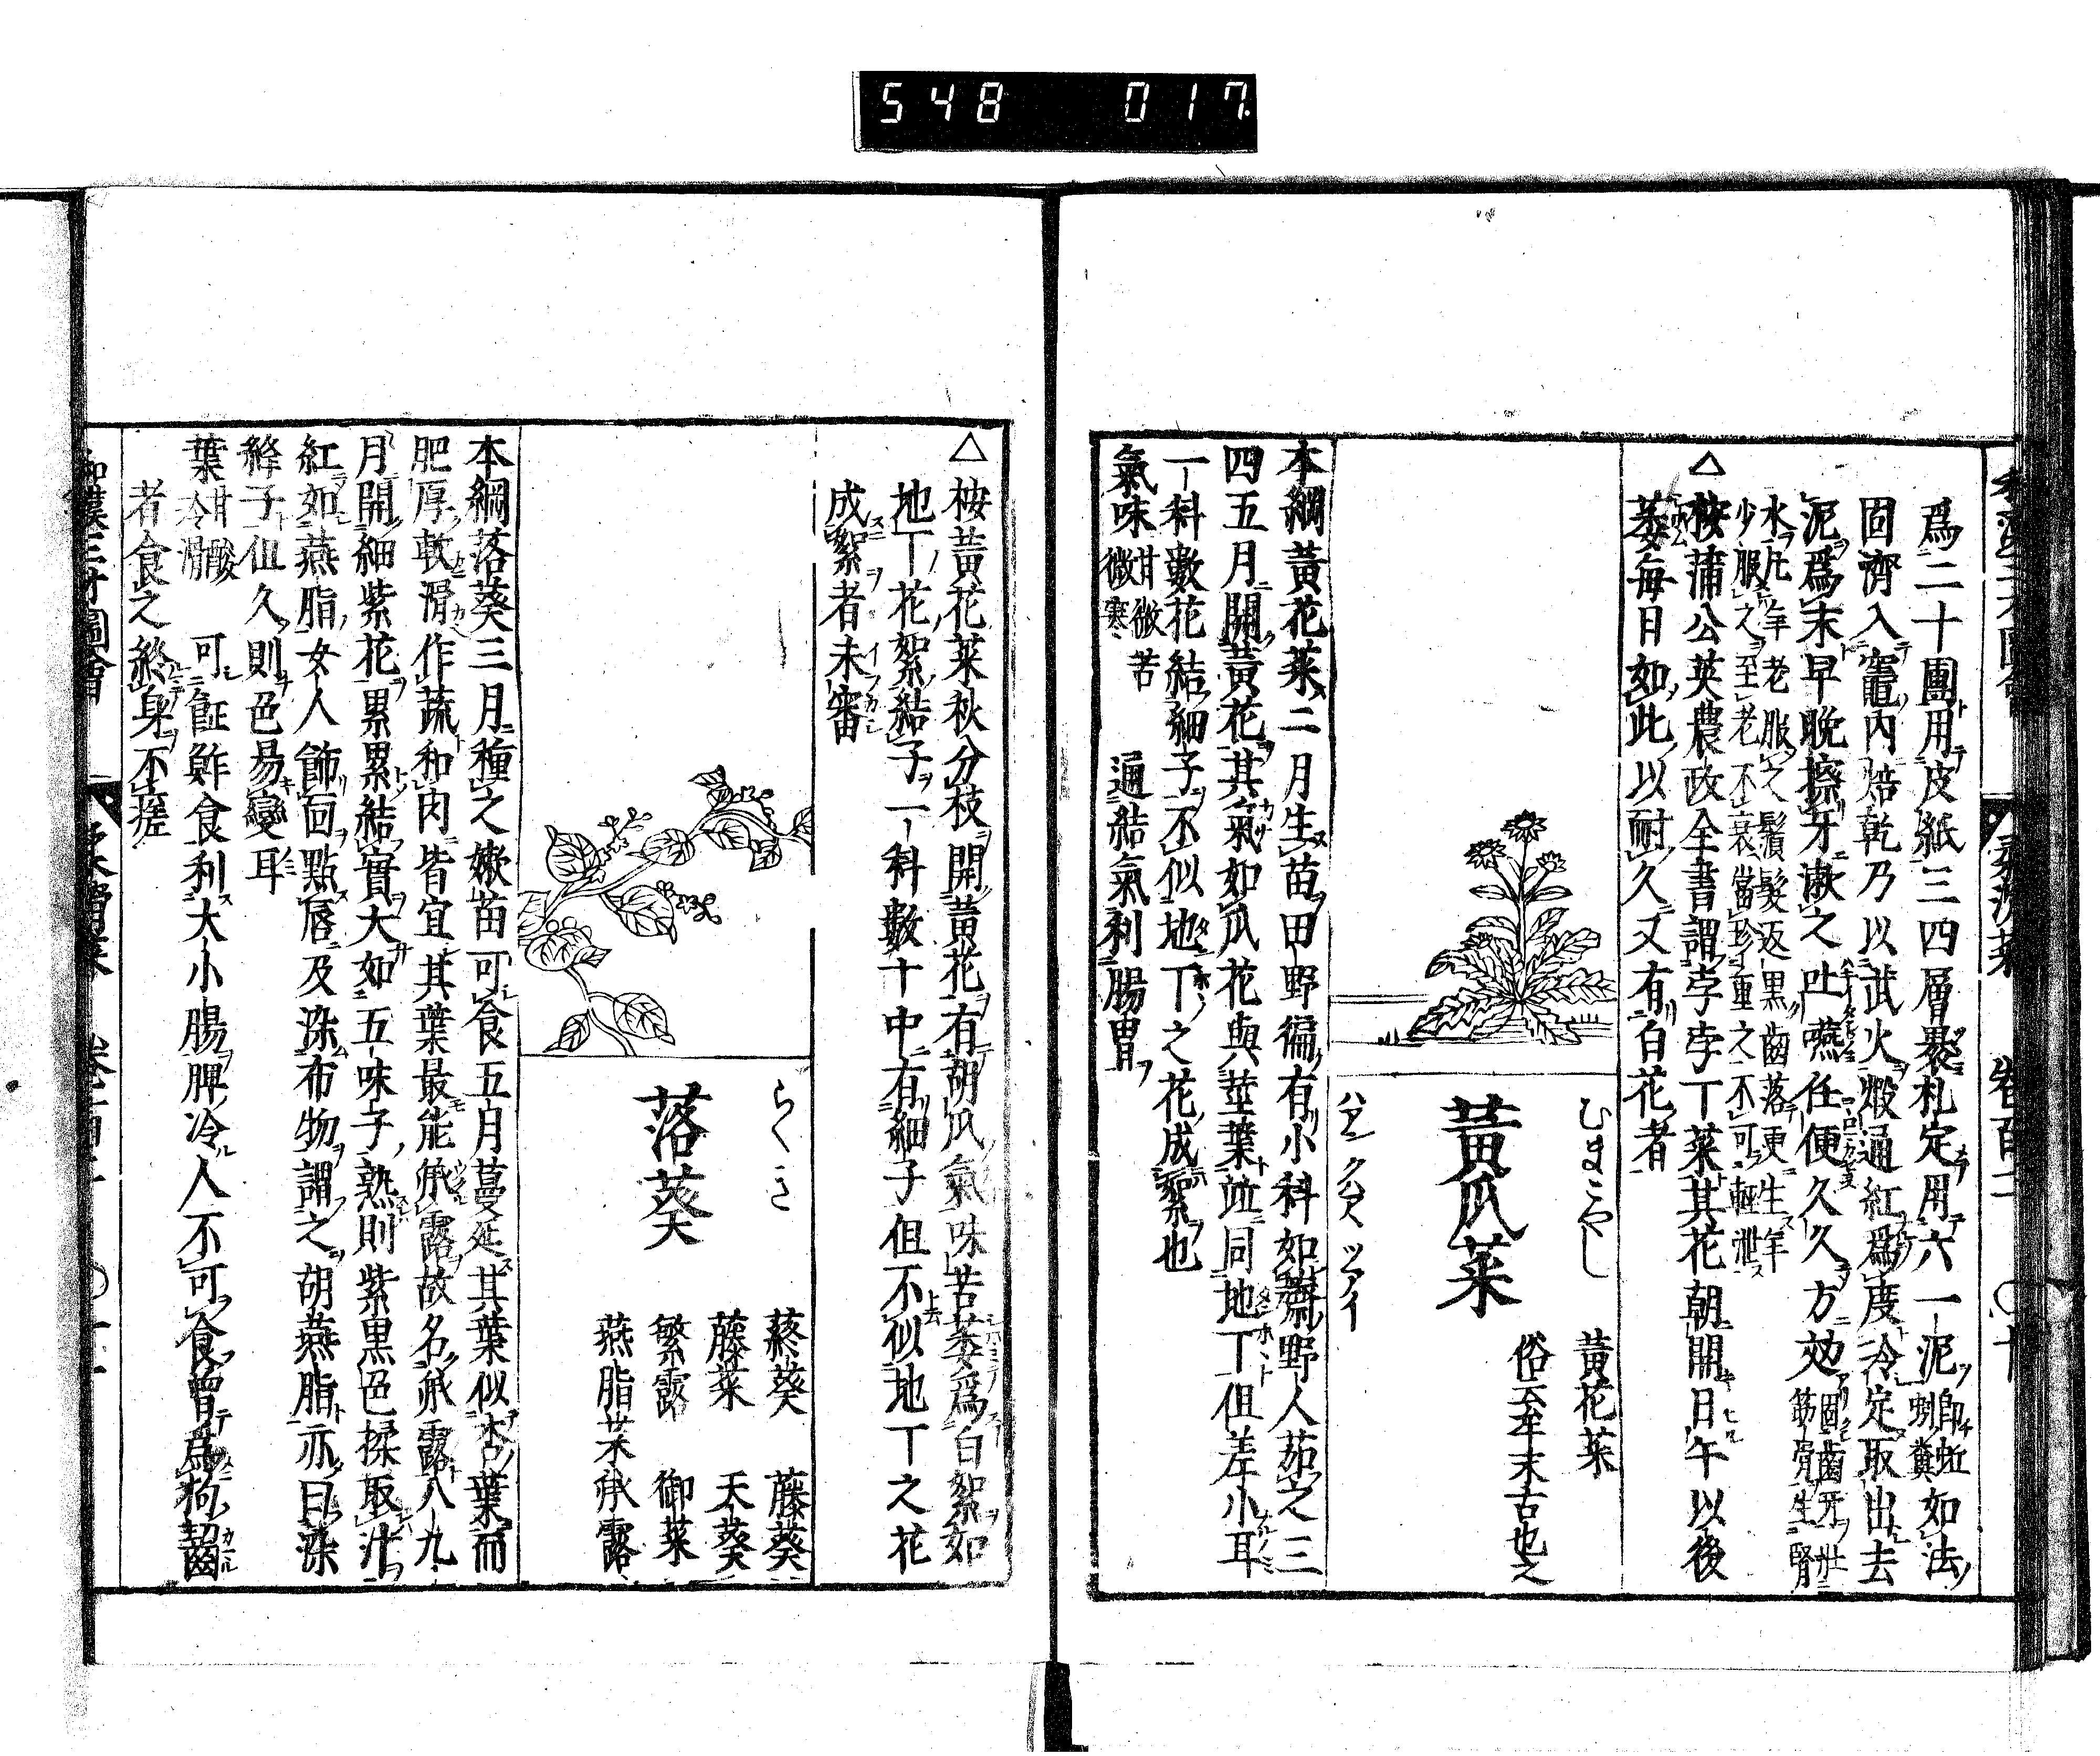 548 017
爲二十團用皮紙三四層裹札定用六一泥即蚯蚓糞如法
固濟入竈內焙乾乃以武火煅通紅爲度冷定取出去
泥爲末早晚擦牙漱之吐嚥任便久久方效固齒牙壯筋骨生腎
水凡年老服之鬚髮返黒齒落更生年
少服之至老不衰當珍重之不可輕泄
△桉蒲公英農政全書謂孛孛丁菜其花朝開日午以後
萎毎日如此以耐久又有白花者
むまこやし
黃瓜菜
黃花菜
俗云牟末古也之
ハアン クハアヽ ツアイ
本綱黃花菜二月生苗田野徧有小科如薺野人茹之三
四五月開黃花其氣如瓜花與莖葉竝同地丁但差小耳
一科數花結細子不似地丁之花成絮也
氣味甘微苦微寒 通結氣利腸胃
△桉黃花菜秋分枝開黃花有胡瓜氣味苦萎爲白絮如
地丁花絮結子一科數十中有細子但不似地丁之花
成絮者未審
らくき
落葵
蔠葵 藤葵
藤菜 天葵
繁露 御菜
燕脂菜 承露
本綱落葵三月種之嫩苗可食五月蔓延其葉似杏葉而
肥厚軟滑作蔬和肉皆宜其葉最能承露故名承露八九
月開細紫花累累結實大如五味子熟則紫黒色揉取汁
紅如燕脂女人飾面點唇及染布物謂之胡燕脂亦曰染
絳子但久則色易變耳
葉甘酸冷滑 可飣鮓食利大小腸脾冷人不可食曾爲狗齧
者食之終身不瘥